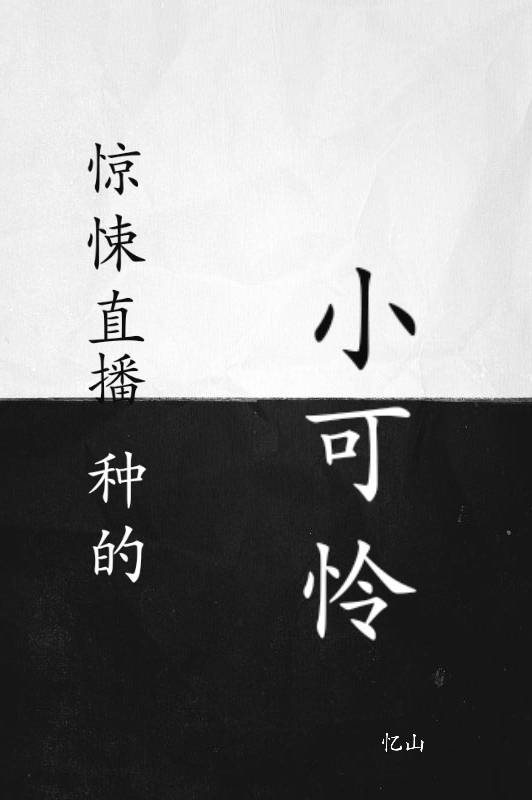 惊悚直播 种的
小可怜
忆山